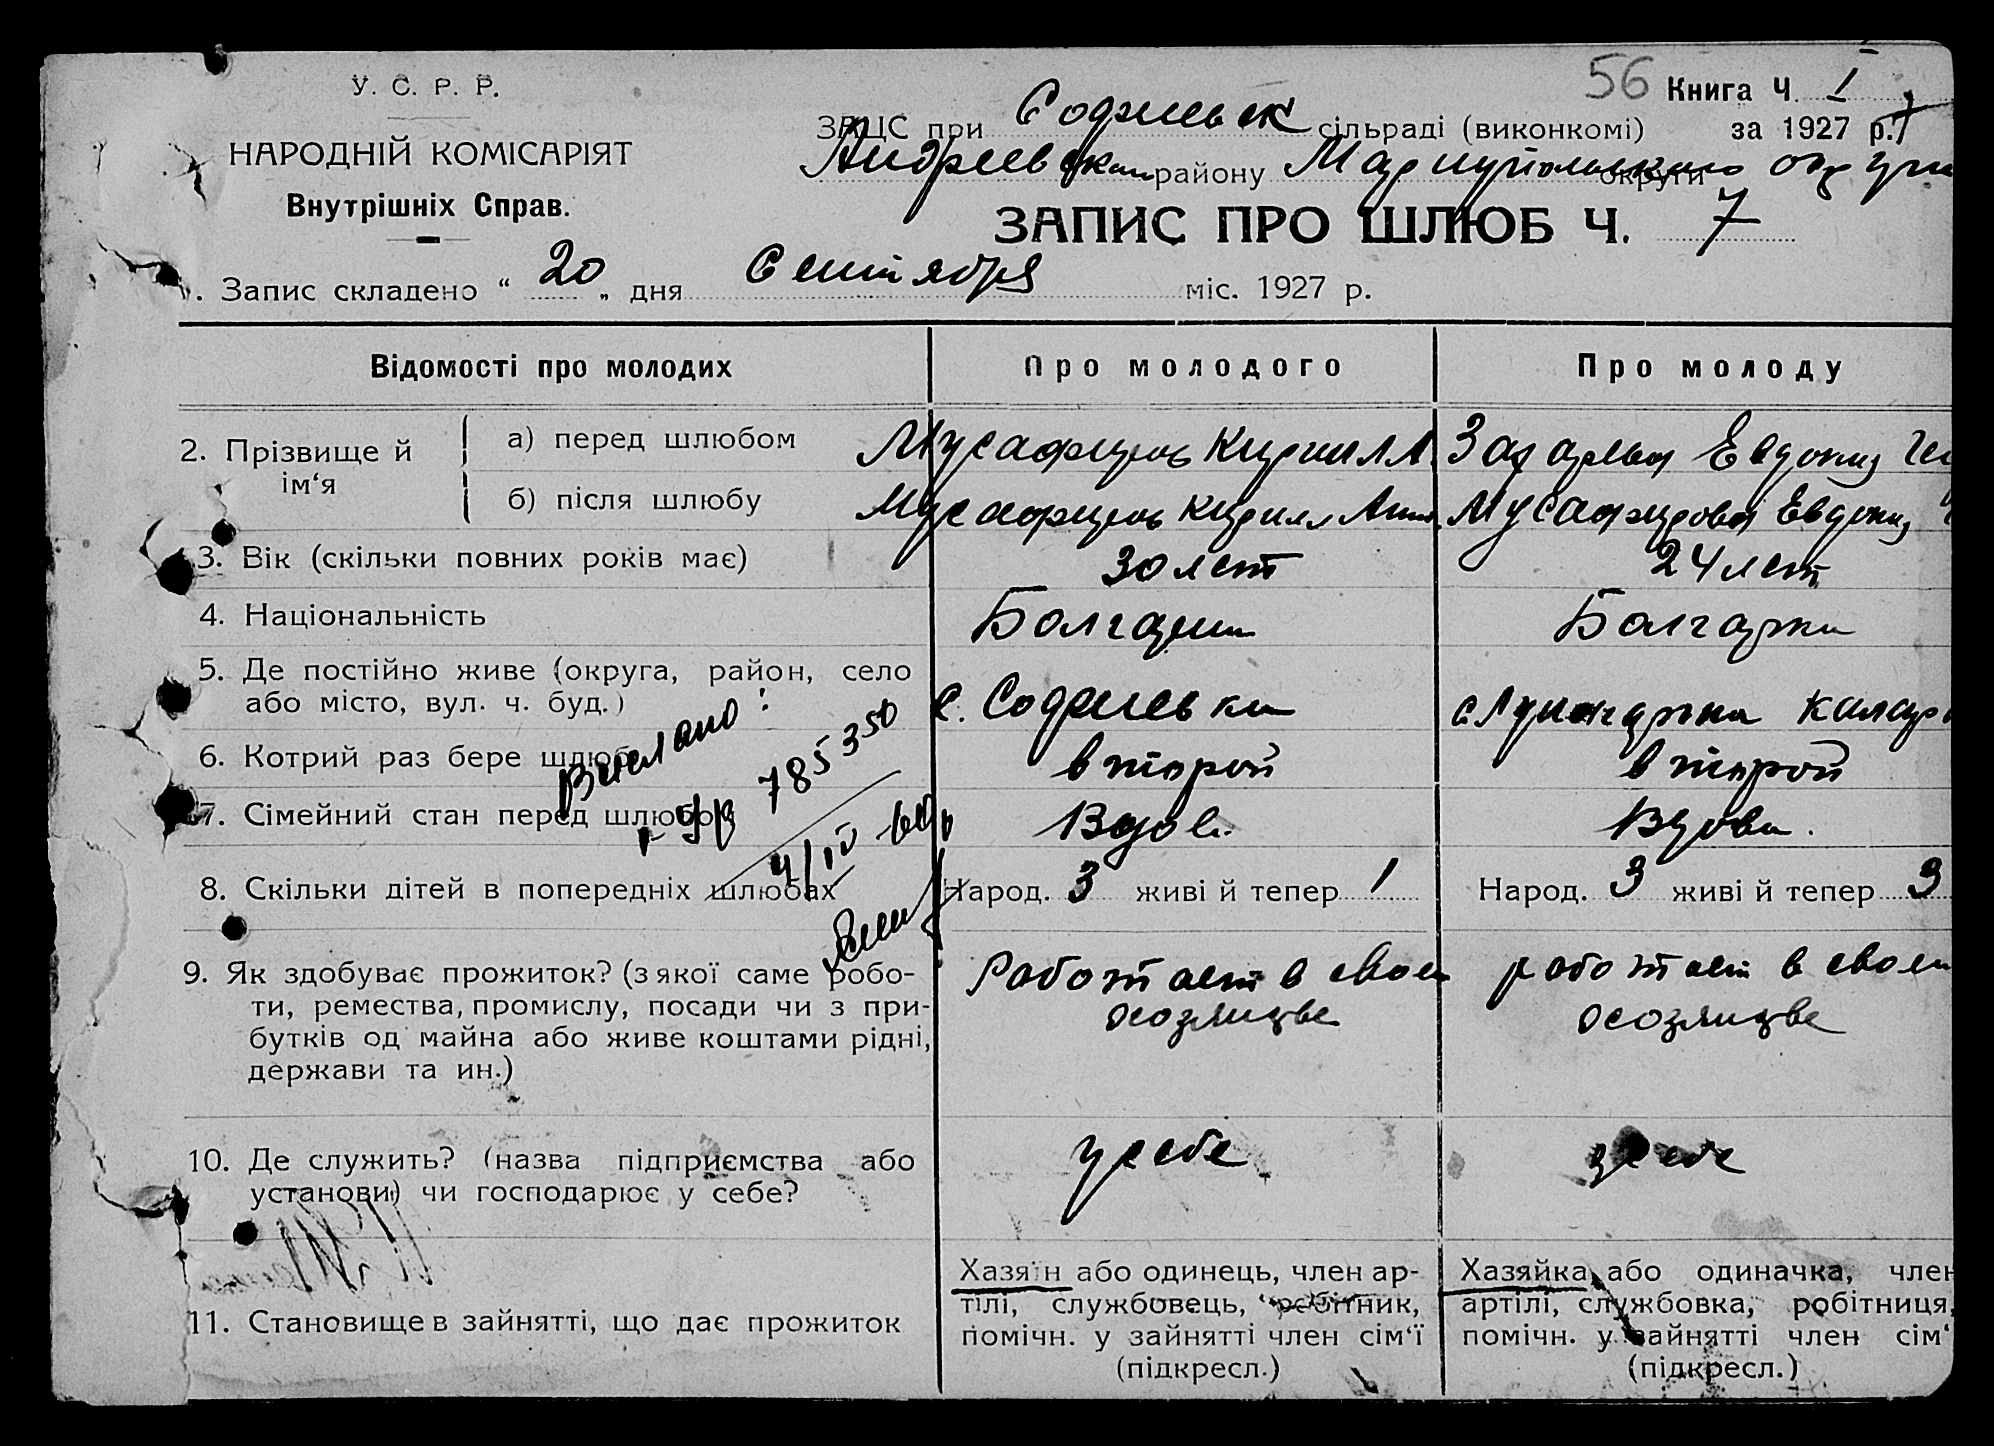 У. С. Р. Р.
НАРОДНІЙ КОМІСАРІЯТ
Внутрішніх Справ.
56 Книга Ч. I
ЗАЦС при сільраді (виконкомі) за 1927 р.
района Мариупольского округи
ЗАПИС ПРО ШЛЮБ Ч. 7
. Запис складено “ 20 „ дня Сентября міс. 1927 р.
Відомості про молодих Про молодого Про молоду
2. Прізвище й ім‘я
а) перед шлюбом Кирилл Евдокия
б) після шлюбу Кирилл Евдокия
3. Вік (скільки повних років має) 30 лет 24 лет
4. Національність Болгарин Болгарка
5. Де постійно живе (округа, район, село
або місто, вул. ч. буд.) с.
6. Котрий раз бере шлюб второй второй
7. Сімейний стан перед шлюбом Вдов. Вдова.
8. Скільки дітей в попередніх шлюбах Народ. 3 живі й тепер 1 Народ. 3 живі й тепер 3
785350
9. Як здобуває прожиток? (з якої саме робо-
ти, ремества, промислу, посади чи з при-
бутків од майна або живе коштами рідні,
держави та ин.)
Работает в своем
работает в своем
10. Де служить? (назва підприємства або
установи) чи господарює у себе?
у себе у себе
11. Становище в зайнятті, що дає прожиток
Хазяїн або одинець, член ар-
тілі, службовець, робітник,
помічн. у зайнятті член сім‘ї
(підкресл.)
Хазяйка або одиначка, член
артілі, службовка, робітниця,
помічн. у зайнятті член сім‘
(підкресл.)